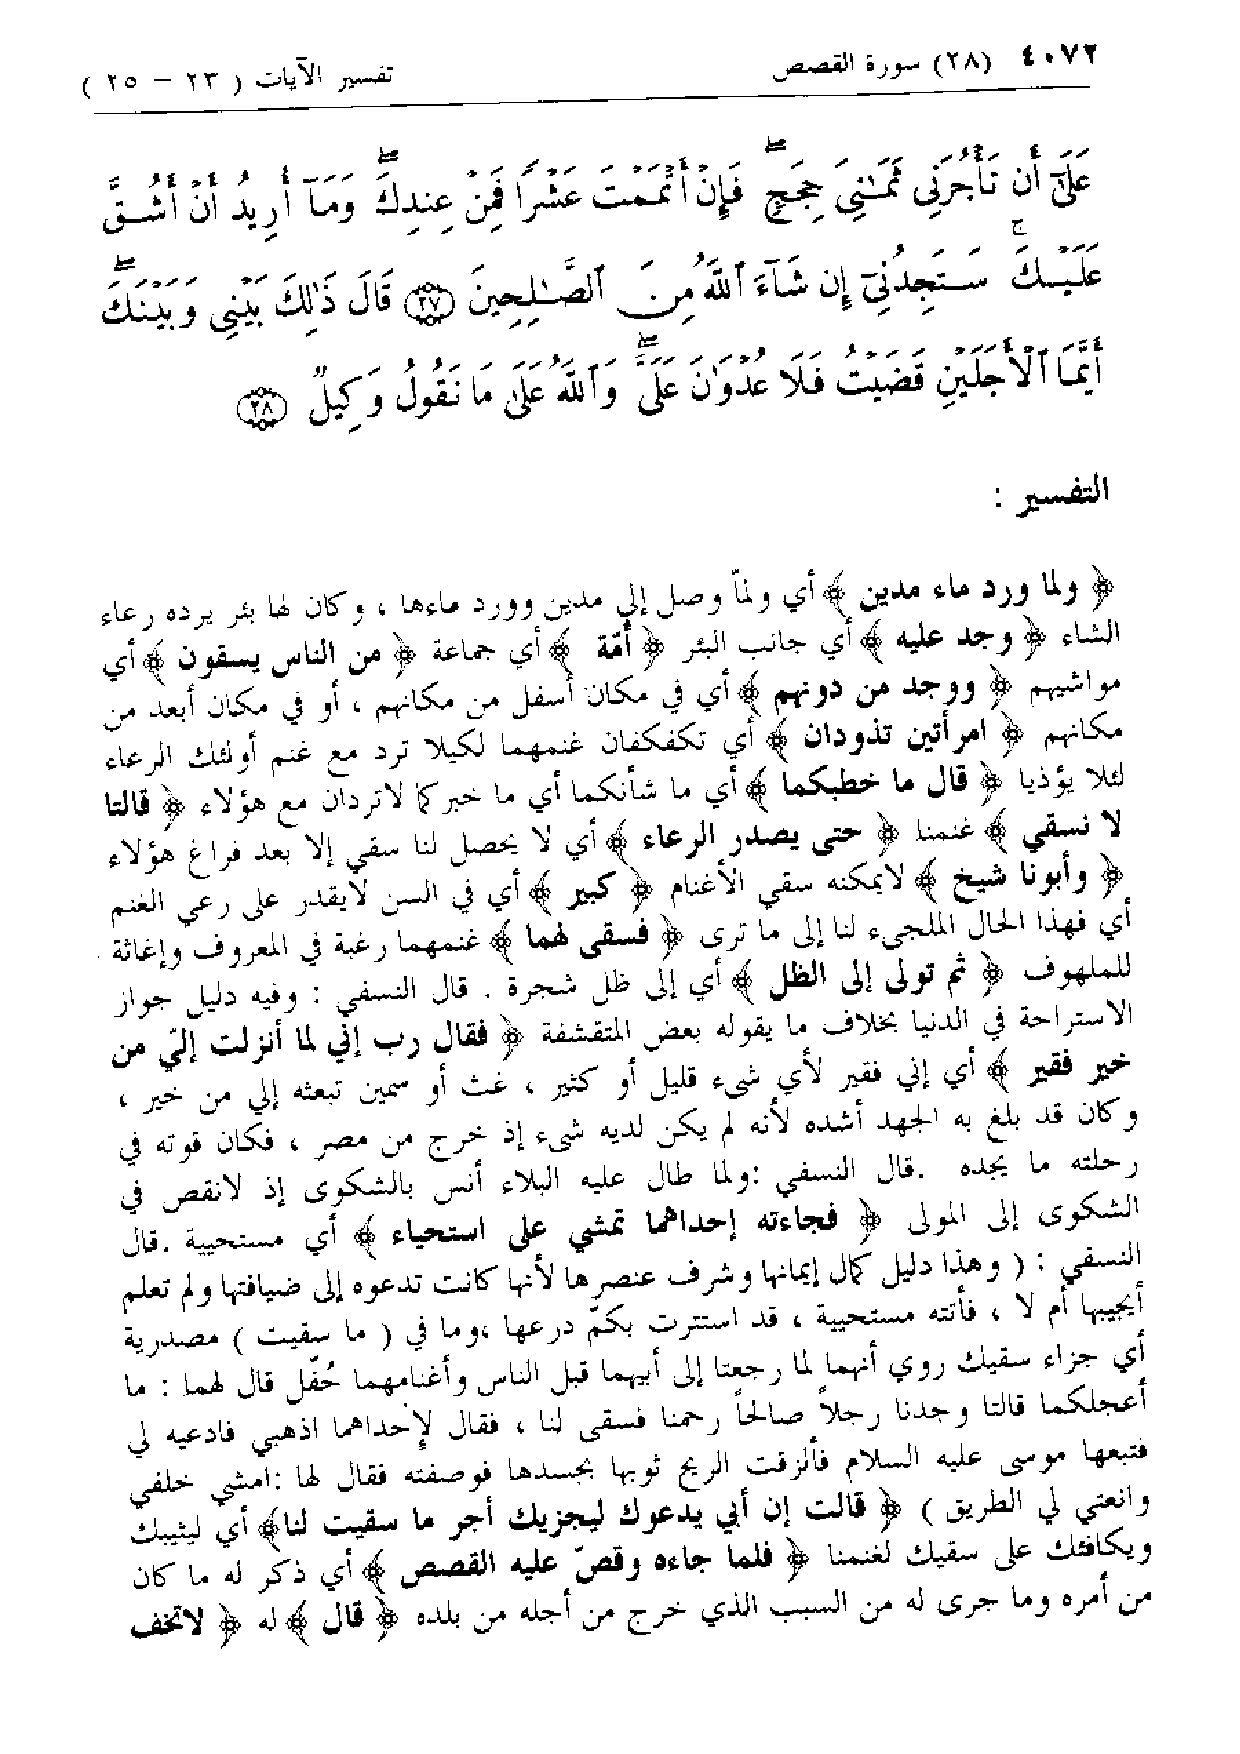 ٤٠٧٢ (٢٨) سورة القصص تفسير الآيات ( ٢٣ - ٢٥ )
عَلَىٰٓ أَن تَأْجُرَنِى ثَمَٰنِىَ حِجَجٍ ۖ فَإِنْ أَتْمَمْتَ عَشْرًا فَمِنْ عِندِكَ ۖ وَمَآ أُرِيدُ أَنْ أَشُقَّ
عَلَيْكَ ۚ سَتَجِدُنِىٓ إِن شَآءَ ٱللَّهُ مِنَ ٱلصَّٰلِحِينَ ٢٧ قَالَ ذَٰلِكَ بَيْنِى وَبَيْنَكَ ۖ
أَيَّمَا ٱلْأَجَلَيْنِ قَضَيْتُ فَلَا عُدْوَٰنَ عَلَىَّ ۖ وَٱللَّهُ عَلَىٰ مَا نَقُولُ وَكِيلٌ ٢٨
التفسير :
﴿ ولما ورد ماء مدين ﴾ أي ولمّا وصل إلى مدين وورد ماءها ، وكان لها بئر يرده رعاء
الشاء ﴿ وجد عليه ﴾ أي جانب البئر ﴿ أُمّة ﴾ أي جماعة ﴿ من الناس يسقون ﴾ أي
مواشيهم ﴿ ووجد من دونهم ﴾ أي في مكان أسفل من مكانهم ، أو في مكان أبعد من
مكانهم ﴿ امرأتين تذودان ﴾ أي تكفكفان غنمهما لكيلا ترد مع غنم أولئك الرعاء
لئلا يؤذيا ﴿ قال ما خطبكما ﴾ أي ما شأنكما أي ما خبركما لاتردان مع هؤلاء ﴿ قالتا
لا نسقي ﴾ غنمنا ﴿ حتى يصدر الرعاء ﴾ أي لا يحصل لنا سقي إلا بعد فراغ هؤلاء
﴿ وأبونا شيخ ﴾ لايمكنه سقي الأغنام ﴿ كبير ﴾ أي في السن لايقدر على رعي الغنم
أي فهذا الحال الملجىء لنا إلى ما ترى ﴿ فسقى لهما ﴾ غنمهما رغبة في المعروف وإغاثة
للملهوف ﴿ ثم تولى إلى الظل ﴾ أي إلى ظل شجرة . قال النسفي : وفيه دليل جواز
الاستراحة في الدنيا بخلاف ما يقوله بعض المتقشفة ﴿ فقال رب إني لما أنزلت إليّ من
خير فقير ﴾ أي إني فقير لأي شىء قليل أو كثير ، غث أو سمين تبعثه إلي من خير ،
وكان قد بلغ به الجهد أشده لأنه لم يكن لديه شىء إذ خرج من مصر ، فكان قوته في
رحلته ما يجده . قال النسفي : ولما طال عليه البلاء أنس بالشكوى إذ لانقص في
الشكوى إلى المولى ﴿ فجاءته إحداهما تمشي على استحياء ﴾ أي مستحيية . قال
النسفي : ( وهذا دليل كمال إيمانها وشرف عنصرها لأنها كانت تدعوه إلى ضيافتها ولم تعلم
أيجيبها أم لا ، فأتته مستحيية ، قد استترت بكمّ درعها ، وما في ( ما سقيت ) مصدرية
أي جزاء سقيك روي أنهما لما رجعتا إلى أبيهما قبل الناس وأغنامهما حُفّل قال لهما : ما
أعجلكما قالتا وجدنا رجلاً صالحاً رحمنا فسقى لنا ، فقال لإحداهما اذهبي فادعيه لي
فتبعها موسى عليه السلام فألزقت الريح ثوبها بجسدها فوصفته فقال لها : امشي خلفي
وانعتي لي الطريق ) ﴿ قالت إن أبي يدعوك ليجزيك أجر ما سقيت لنا ﴾ أي ليثيبك
ويكافئك على سقيك لغنمنا ﴿ فلما جاءه وقصّ عليه القصص ﴾ أي ذكر له ما كان
من أمره وما جرى له من السبب الذي خرج من أجله من بلده ﴿ قال ﴾ له ﴿ لاتخف